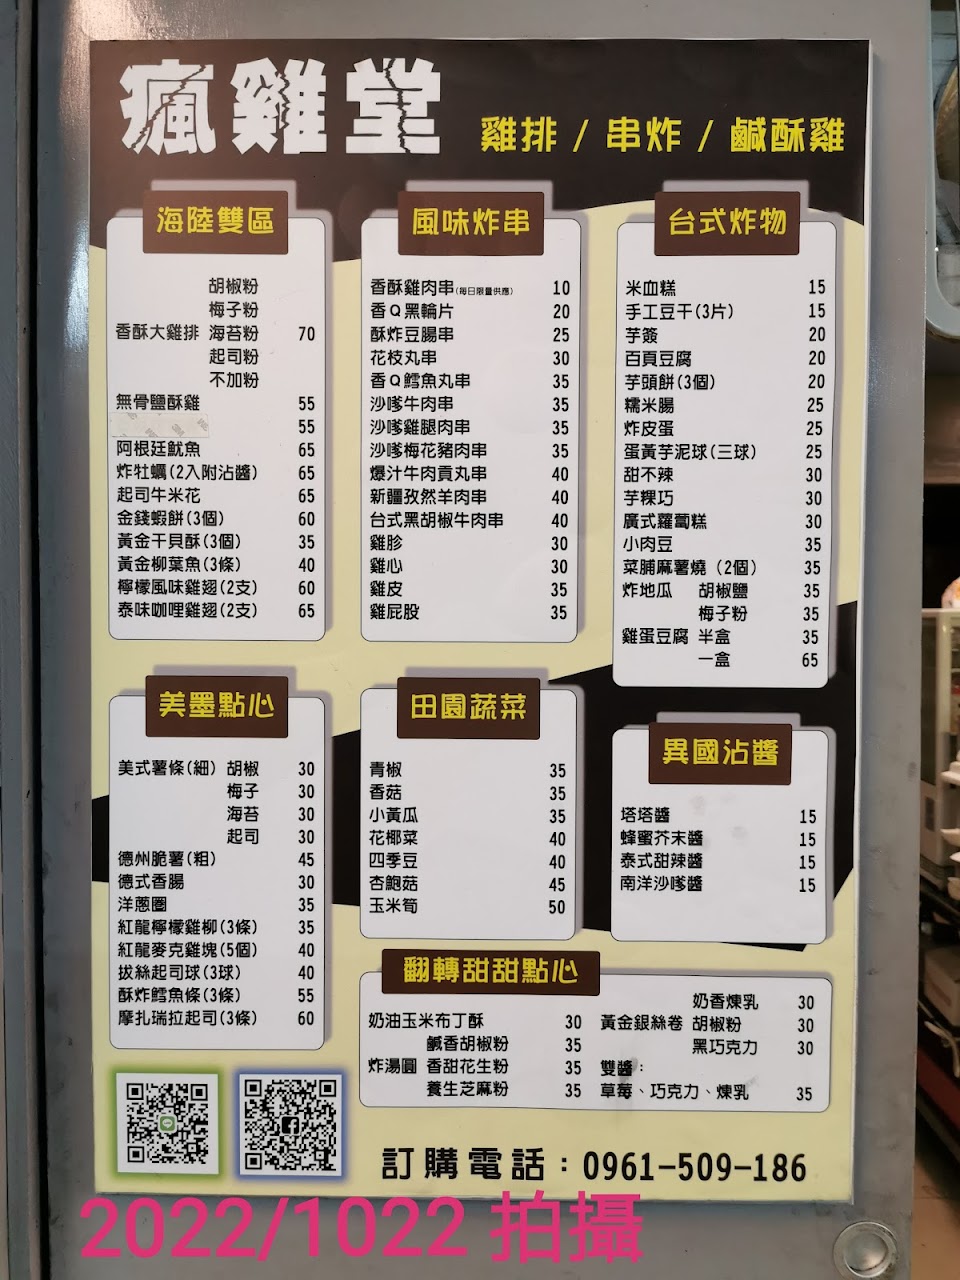 瘋雞堂
雞排 / 串炸 / 鹹酥雞
海陸雙區
胡椒粉
梅子粉
香酥大雞排 海苔粉 70
起司粉
不加粉
無骨鹽酥雞 55
55
阿根廷魷魚 65
炸牡蠣(2入附沾醬) 65
起司牛米花 65
金錢蝦餅(3個) 60
黃金干貝酥(3個) 35
黃金柳葉魚(3條) 40
檸檬風味雞翅(2支) 60
泰味咖哩雞翅(2支) 65
風味炸串
香酥雞肉串(每日限量供應) 10
香Q黑輪片 20
酥炸豆腸串 25
花枝丸串 30
香Q鱈魚丸串 35
沙嗲牛肉串 35
沙嗲雞腿肉串 35
沙嗲梅花豬肉串 35
爆汁牛肉貢丸串 40
新疆孜然羊肉串 40
台式黑胡椒牛肉串 40
雞胗 30
雞心 30
雞皮 35
雞屁股 35
台式炸物
米血糕 15
手工豆干(3片) 15
芋簽 20
百頁豆腐 20
芋頭餅(3個) 20
糯米腸 25
炸皮蛋 25
蛋黃芋泥球(三球) 25
甜不辣 30
芋粿巧 30
廣式蘿蔔糕 30
小肉豆 35
菜脯麻薯燒 (2個) 35
炸地瓜 胡椒鹽 35
梅子粉 35
雞蛋豆腐 半盒 35
一盒 65
美墨點心
美式薯條(細) 胡椒 30
梅子 30
海苔 30
起司 30
德州脆薯(粗) 45
德式香腸 30
洋蔥圈 35
紅龍檸檬雞柳(3條) 35
紅龍麥克雞塊(5個) 40
拔絲起司球(3球) 40
酥炸鱈魚條(3條) 55
摩扎瑞拉起司(3條) 60
田園蔬菜
青椒 35
香菇 35
小黃瓜 35
花椰菜 40
四季豆 40
杏鮑菇 45
玉米筍 50
異國沾醬
塔塔醬 15
蜂蜜芥末醬 15
泰式甜辣醬 15
南洋沙嗲醬 15
翻轉甜甜點心
奶油玉米布丁酥 30
鹹香胡椒粉 35
炸湯圓 香甜花生粉 35
養生芝麻粉 35
奶香煉乳 30
黃金銀絲卷 胡椒粉 30
黑巧克力 30
雙醬:
草莓、巧克力、煉乳 35
訂購電話:0961-509-186
2022/1022 拍攝